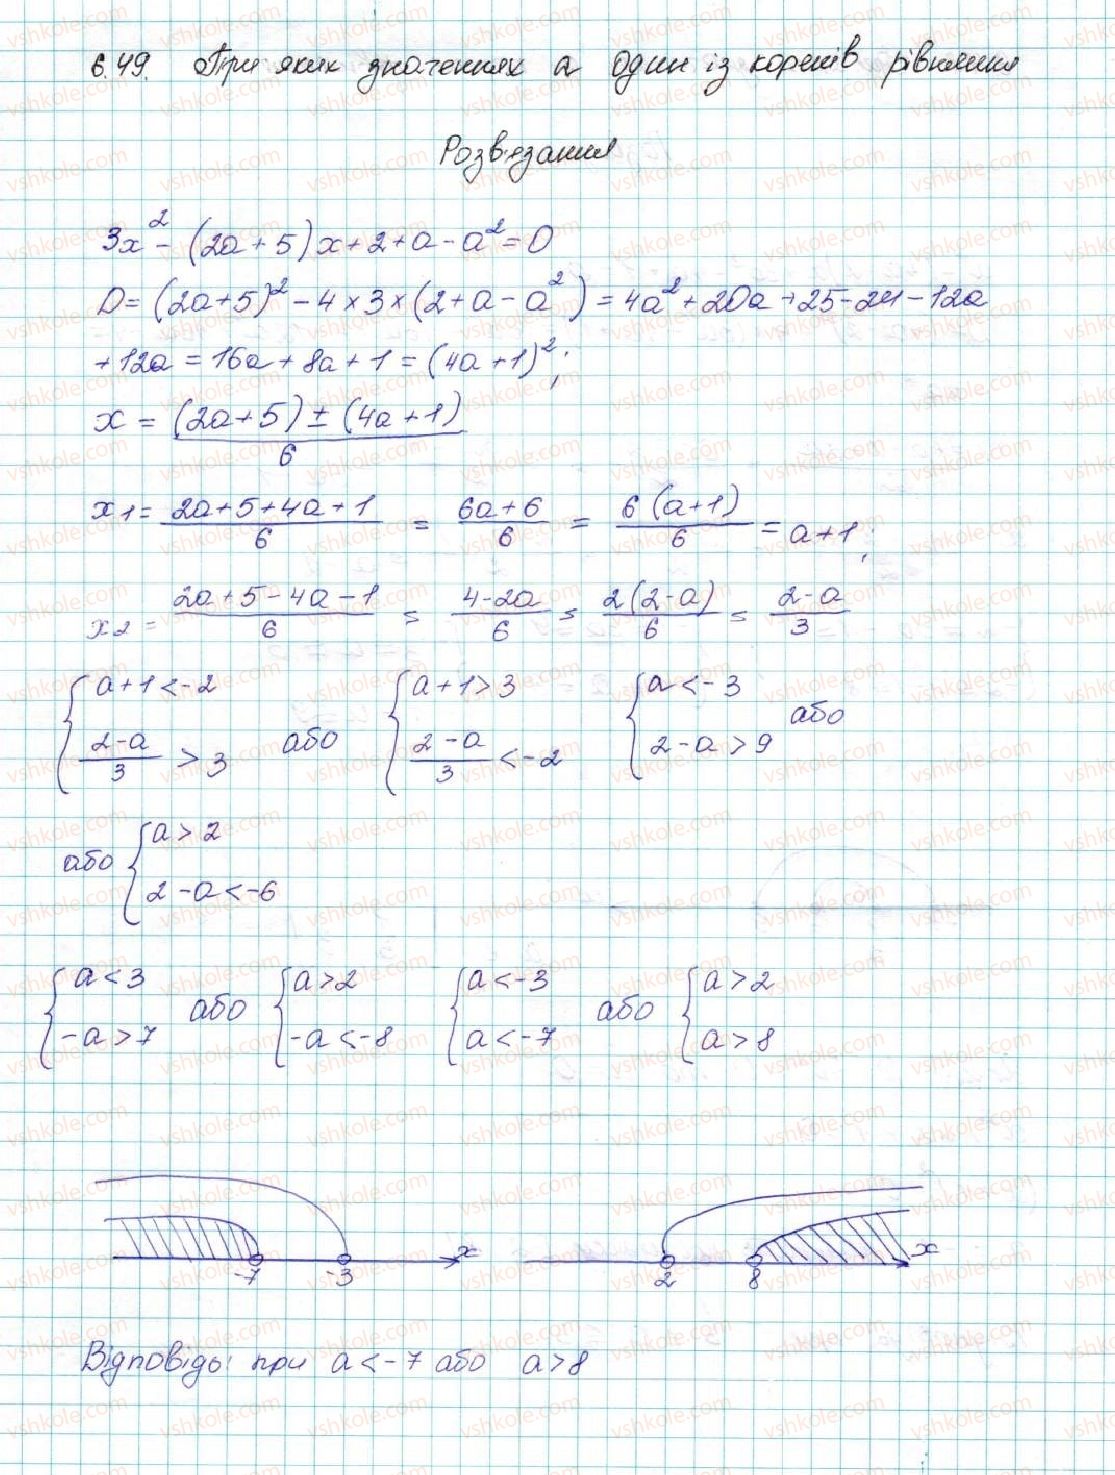 6.49. При яких значеннях а один із коренів рівняння
Розв'язання
3x² - (2a + 5)x + 2 + a - a² = 0
D = (2a + 5)² - 4 × 3 × (2 + a - a²) = 4a² + 20a + 25 - 24 - 12a
+ 12a = 16a + 8a + 1 = (4a + 1)²;
x = ((2a + 5) ± (4a + 1))/6
x1 = (2a + 5 + 4a + 1)/6 = (6a + 6)/6 = 6(a + 1)/6 = a + 1;
x2 = (2a + 5 - 4a - 1)/6 = (4 - 2a)/6 = 2(2 - a)/6 = (2 - a)/3
{ a + 1 < -2 { a + 1 > 3 { a < -3
(2 - a)/3 > 3 або (2 - a)/3 < -2 2 - a > 9 або
або { a > 2
2 - a < -6
{ a < 3 { a > 2 { a < -3 { a > 2
-a > 7 або -a < -8 a < -7 або a > 8
-7 -3 x 2 8 x
Відповідь: при a < -7 або a > 8
vshkole.com